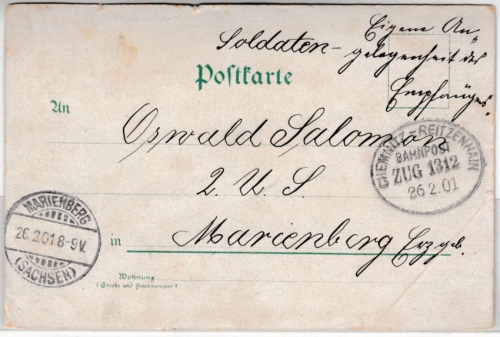 Soldaten-
Eigene An-
gelegenheit des
Empfängers.
Postkarte
An
Oswald Salomon
2. U. S.
in Marienberg Erzgeb.
Wohnung
(Straße und Hausnummer)
CHEMNITZ-REITZENHAIN
BAHNPOST
ZUG 1312
26 2.01
MARIENBERG
26.2.01 8-9V.
(SACHSEN)